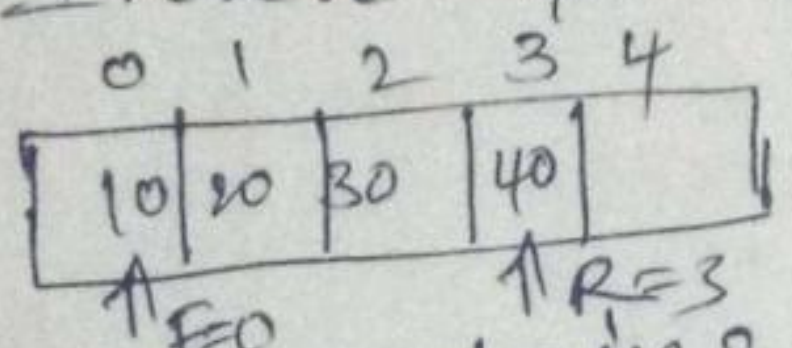 0 1 2 3 4
10 20 30 40
F=0 R=3